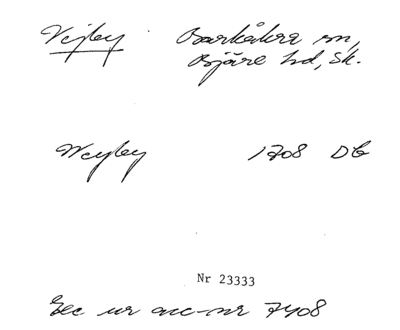 Vejby Barkåkra sn,
Bjäre hd, Sk.
Weyby 1708 DB
Nr 23333
Exc ur acc-nr 7408